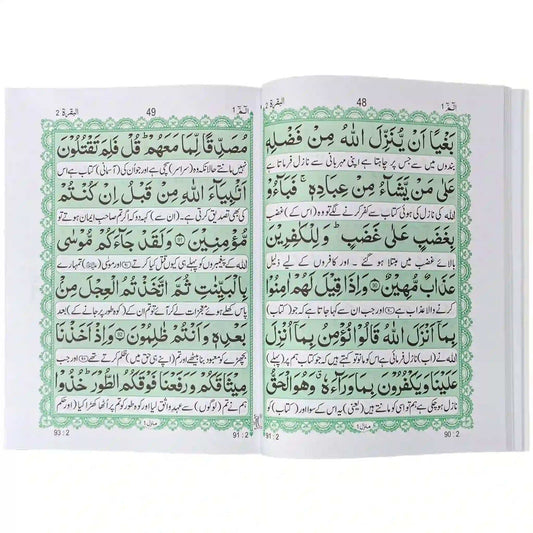 الٓمّٓ ١
48
البقرة ٢
بَغْيًا اَنْ يُّنَزِّلَ اللّٰهُ مِنْ فَضْلِهٖ
بندوں میں سے جس پر چاہتا ہے اپنی مہربانی سے نازل فرماتا ہے
عَلٰى مَنْ يَّشَآءُ مِنْ عِبَادِهٖ ۚ فَبَآءُوْ
اللہ کی نازل کی ہوئی کتاب سے کفر کرنے لگے تو وہ (اس کے) غضب
بِغَضَبٍ عَلٰى غَضَبٍ ؕ وَلِلْكٰفِرِيْنَ
بالائے غضب میں مبتلا ہو گئے ۔ اور کافروں کے لیے ذلیل
عَذَابٌ مُّهِيْنٌ ۝ وَاِذَا قِيْلَ لَهُمْ اٰمِنُوْا
کرنے والا عذاب ہے اور جب ان سے کہا جاتا ہے کہ جو (کتاب)
بِمَاۤ اَنْزَلَ اللّٰهُ قَالُوْا نُؤْمِنُ بِمَاۤ اُنْزِلَ
اللہ نے (اب) نازل فرمائی ہے اس کو مانو تو کہتے ہیں کہ جو کتاب ہم پر (پہلے)
عَلَيْنَا وَيَكْفُرُوْنَ بِمَا وَرَآءَهٗ ۗ وَهُوَ الْحَقُّ
نازل ہو چکی ہے ہم تو اسی کو مانتے ہیں (یعنی) یہ اس کے سوا اور (کتاب) کو
90 : 2
منزل ١
91 : 2
الٓمّٓ ١
49
البقرة ٢
مُصَدِّقًا لِّمَا مَعَهُمْ ؕ قُلْ فَلِمَ تَقْتُلُوْنَ
نہیں مانتے حالانکہ وہ (سراسر) سچی ہے اور جو ان کی (آسمانی) کتاب ہے اس
اَنْۢبِيَآءَ اللّٰهِ مِنْ قَبْلُ اِنْ كُنْتُمْ
کی بھی تصدیق کرتی ہے۔ (ان سے) کہہ دو کہ اگر تم صاحب ایمان ہوتے تو
مُّؤْمِنِيْنَ ۝ وَلَقَدْ جَآءَكُمْ مُّوْسٰى
اللہ کے پیغمبروں کو پہلے ہی کیوں قتل کیا کرتے اور موسیٰ تمہارے
بِالْبَيِّنٰتِ ثُمَّ اتَّخَذْتُمُ الْعِجْلَ مِنْۢ
پاس کھلے ہوئے معجزات لے کر آئے تو تم ان کے (کوہ طور پر جانے کے) بعد
بَعْدِهٖ وَاَنْتُمْ ظٰلِمُوْنَ ۝ وَاِذْ اَخَذْنَا
بچھڑے کو معبود بنا بیٹھے اور تم (اپنے ہی حق میں) ظلم کرتے تھے اور جب
مِيْثَاقَكُمْ وَرَفَعْنَا فَوْقَكُمُ الطُّوْرَ ؕ خُذُوْا
ہم نے تم (لوگوں) سے عہد واثق لیا اور کوہ طور کو تم پر اٹھا کھڑا کیا (اور حکم
91 : 2
منزل ١
93 : 2